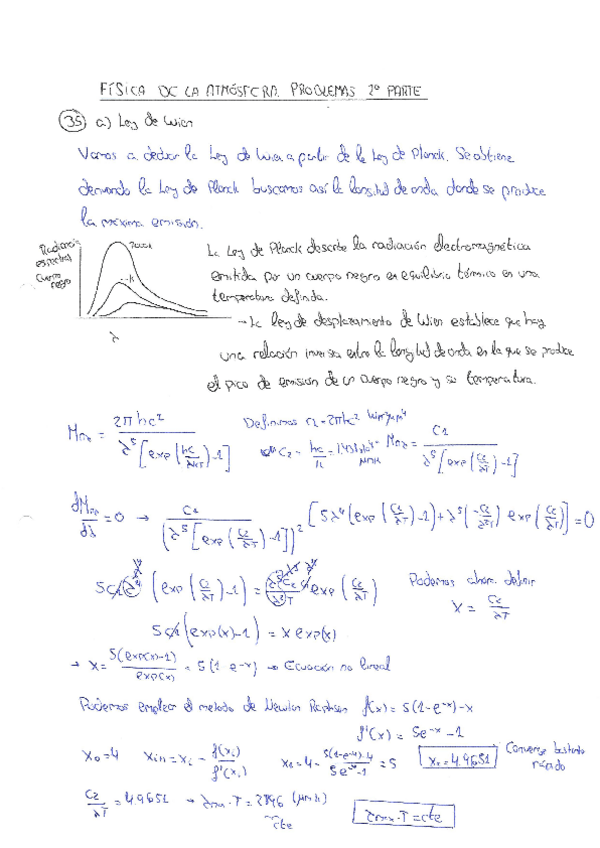 FÍSICA DE LA ATMÓSFERA. PROBLEMAS 2º PARTE
35 a) Ley de Wien
Vamos a deducir la Ley de Wien a partir de la Ley de Planck. Se obtiene
derivando la Ley de Planck buscamos así la longitud de onda donde se produce
la máxima emisión.
Radiancia
espectral
Cuerpo
negro
λ
La Ley de Planck describe la radiación electromagnética
emitida por un cuerpo negro en equilibrio térmico en una
temperatura definida.
→ La ley de desplazamiento de Wien establece que hay
una relación inversa entre la longitud de onda en la que se produce
el pico de emisión de un cuerpo negro y su temperatura.
= 2πhc² / λ⁵[exp(hc/λkT)-1]
Definimos c1=2πhc²
C2 = hc/k = C1 / λ⁵[exp(C2/λT)-1]
=0 → C1 / (λ⁵[exp(C2/λT)-1])² [5λ⁴(exp(C2/λT)-1)+λ⁵(-C2/λ²T) exp(C2/λT)]=0
(exp(C2/λT)-1) = exp(C2/λT)
Podemos ahora definir
x = C2/λT
(exp(x)-1) = x exp(x)
→ x = 5(exp(x)-1)/exp(x) = 5(1-e^-x) → Ecuación no lineal
Podemos emplear el metodo de Newton Raphson f(x) = 5(1-e^-x)-x
f'(x) = 5e^-x -1
x0=4 xi+1=xi - f(xi)/f'(xi) = 5 = 4.9651 Converge bastante
rápido
C2/λT = 4.9651 → (μm·k) cte
·T = cte